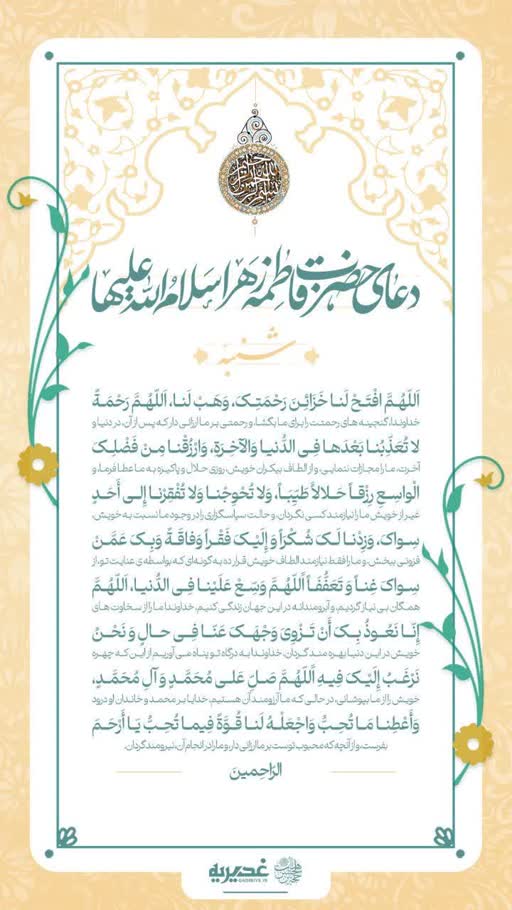 دعای حضرت فاطمه زهرا سلام الله علیها
شنبه
اَللّهُمَّ افْتَحْ لَنا خَزائِنَ رَحْمَتِکَ، وَهَبْ لَنا، اَللّهُمَّ رَحْمَةً
خداوندا، گنجینه های رحمتت را برای ما بگشا، و رحمتی بر ما ارزانی دار که پس از آن، در دنیا و
لا تُعَذِّبُنا بَعْدَها فِی الدُّنیا وَالآخِرَةِ، وَارْزُقْنا مِنْ فَضْلِکَ
آخرت، ما را مجازات ننمایی، و از الطاف بیکران خویش، روزی حلال و پاکیزه به ما عطا فرما، و
الْواسِعِ رِزْقاً حَلالاً طَیِّباً، وَلا تُحْوِجْنا وَلا تُفْقِرْنا إِلی أَحَدٍ
غیر از خویش ما را نیازمند کسی نگردان، و حالت سپاسگزاری را در وجود ما نسبت به خویش،
سِواکَ، وَزِدْنا لَکَ شُکْراً وَ إِلَیْکَ فَقْراً وَفاقَةً وَبِکَ عَمَّنْ
فزونی ببخش، و ما را فقط نیازمند الطاف خویش قرار ده به گونه‌ای که بواسطه ی عنایت تو، از
سِواکَ غِناً وَ تَعَفُّفَاً اَللَّهُمَّ وَسِّعْ عَلَیْنا فِی الدُّنیا، اَللّهُمَّ
همگان بی نیاز گردیم، و آبرومندانه در این جهان زندگی کنیم. خداوندا ما را از سخاوت های
إِنّا نَعُوذُ بِکَ أَنْ تَزْوِیَ وَجْهَکَ عَنّا فِی حالٍ وَ نَحْنُ
خویش در این دنیا بهره مند گردان. خداوندا به درگاه تو پناه می آوریم از این که چهره
نَرْغَبُ إِلَیْکَ فِیهِ اَللّهُمَّ صَلِّ عَلی مُحَمَّدٍ وَ آلِ مُحَمَّدٍ،
خویش را از ما بپوشانی، در حالی که ما آرزومند آن هستیم. خدایا بر محمد و خاندان او درود
وَ أَعْطِنا مَا تُحِبُّ وَاجْعَلْهُ لَنا قُوَّةً فِیما تُحِبُّ یَا أَرْحَمَ
بفرست، و از آنچه که محبوب توست بر ما ارزانی دار، و ما را در انجام آن، نیرومند گردان.
الرّاحِمینَ
غدیریه
QADIRIYE.IR